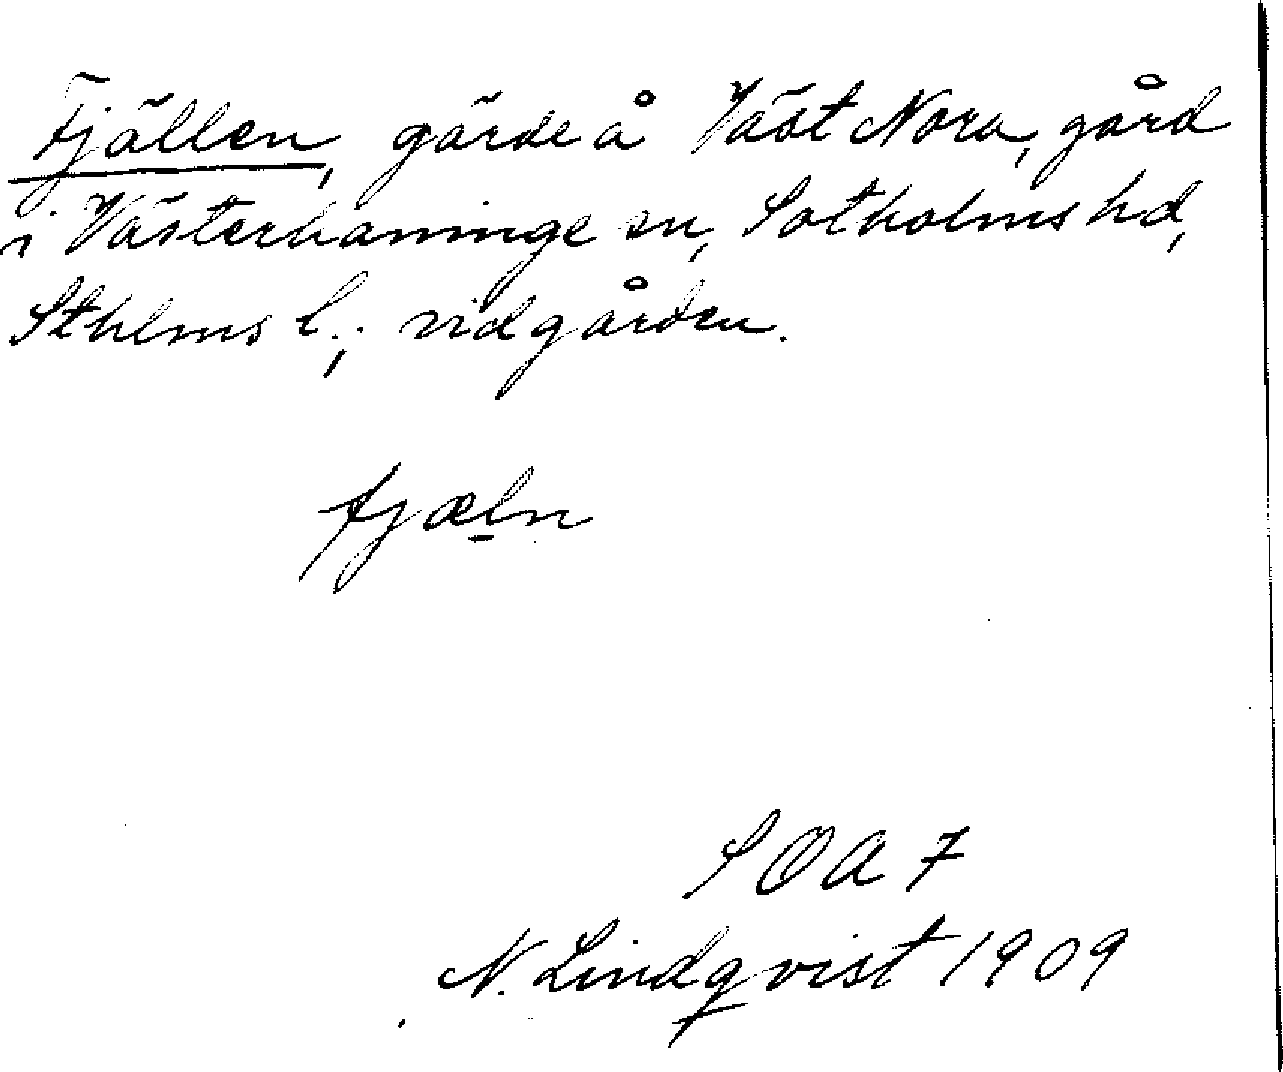 Fjällen, gärde å Väst Nora, gård
i Västerhaninge sn, Sotholms hd,
Sthlms l.; vid gården.
fjæl̠n
SOA 7
N. Lindqvist 1909